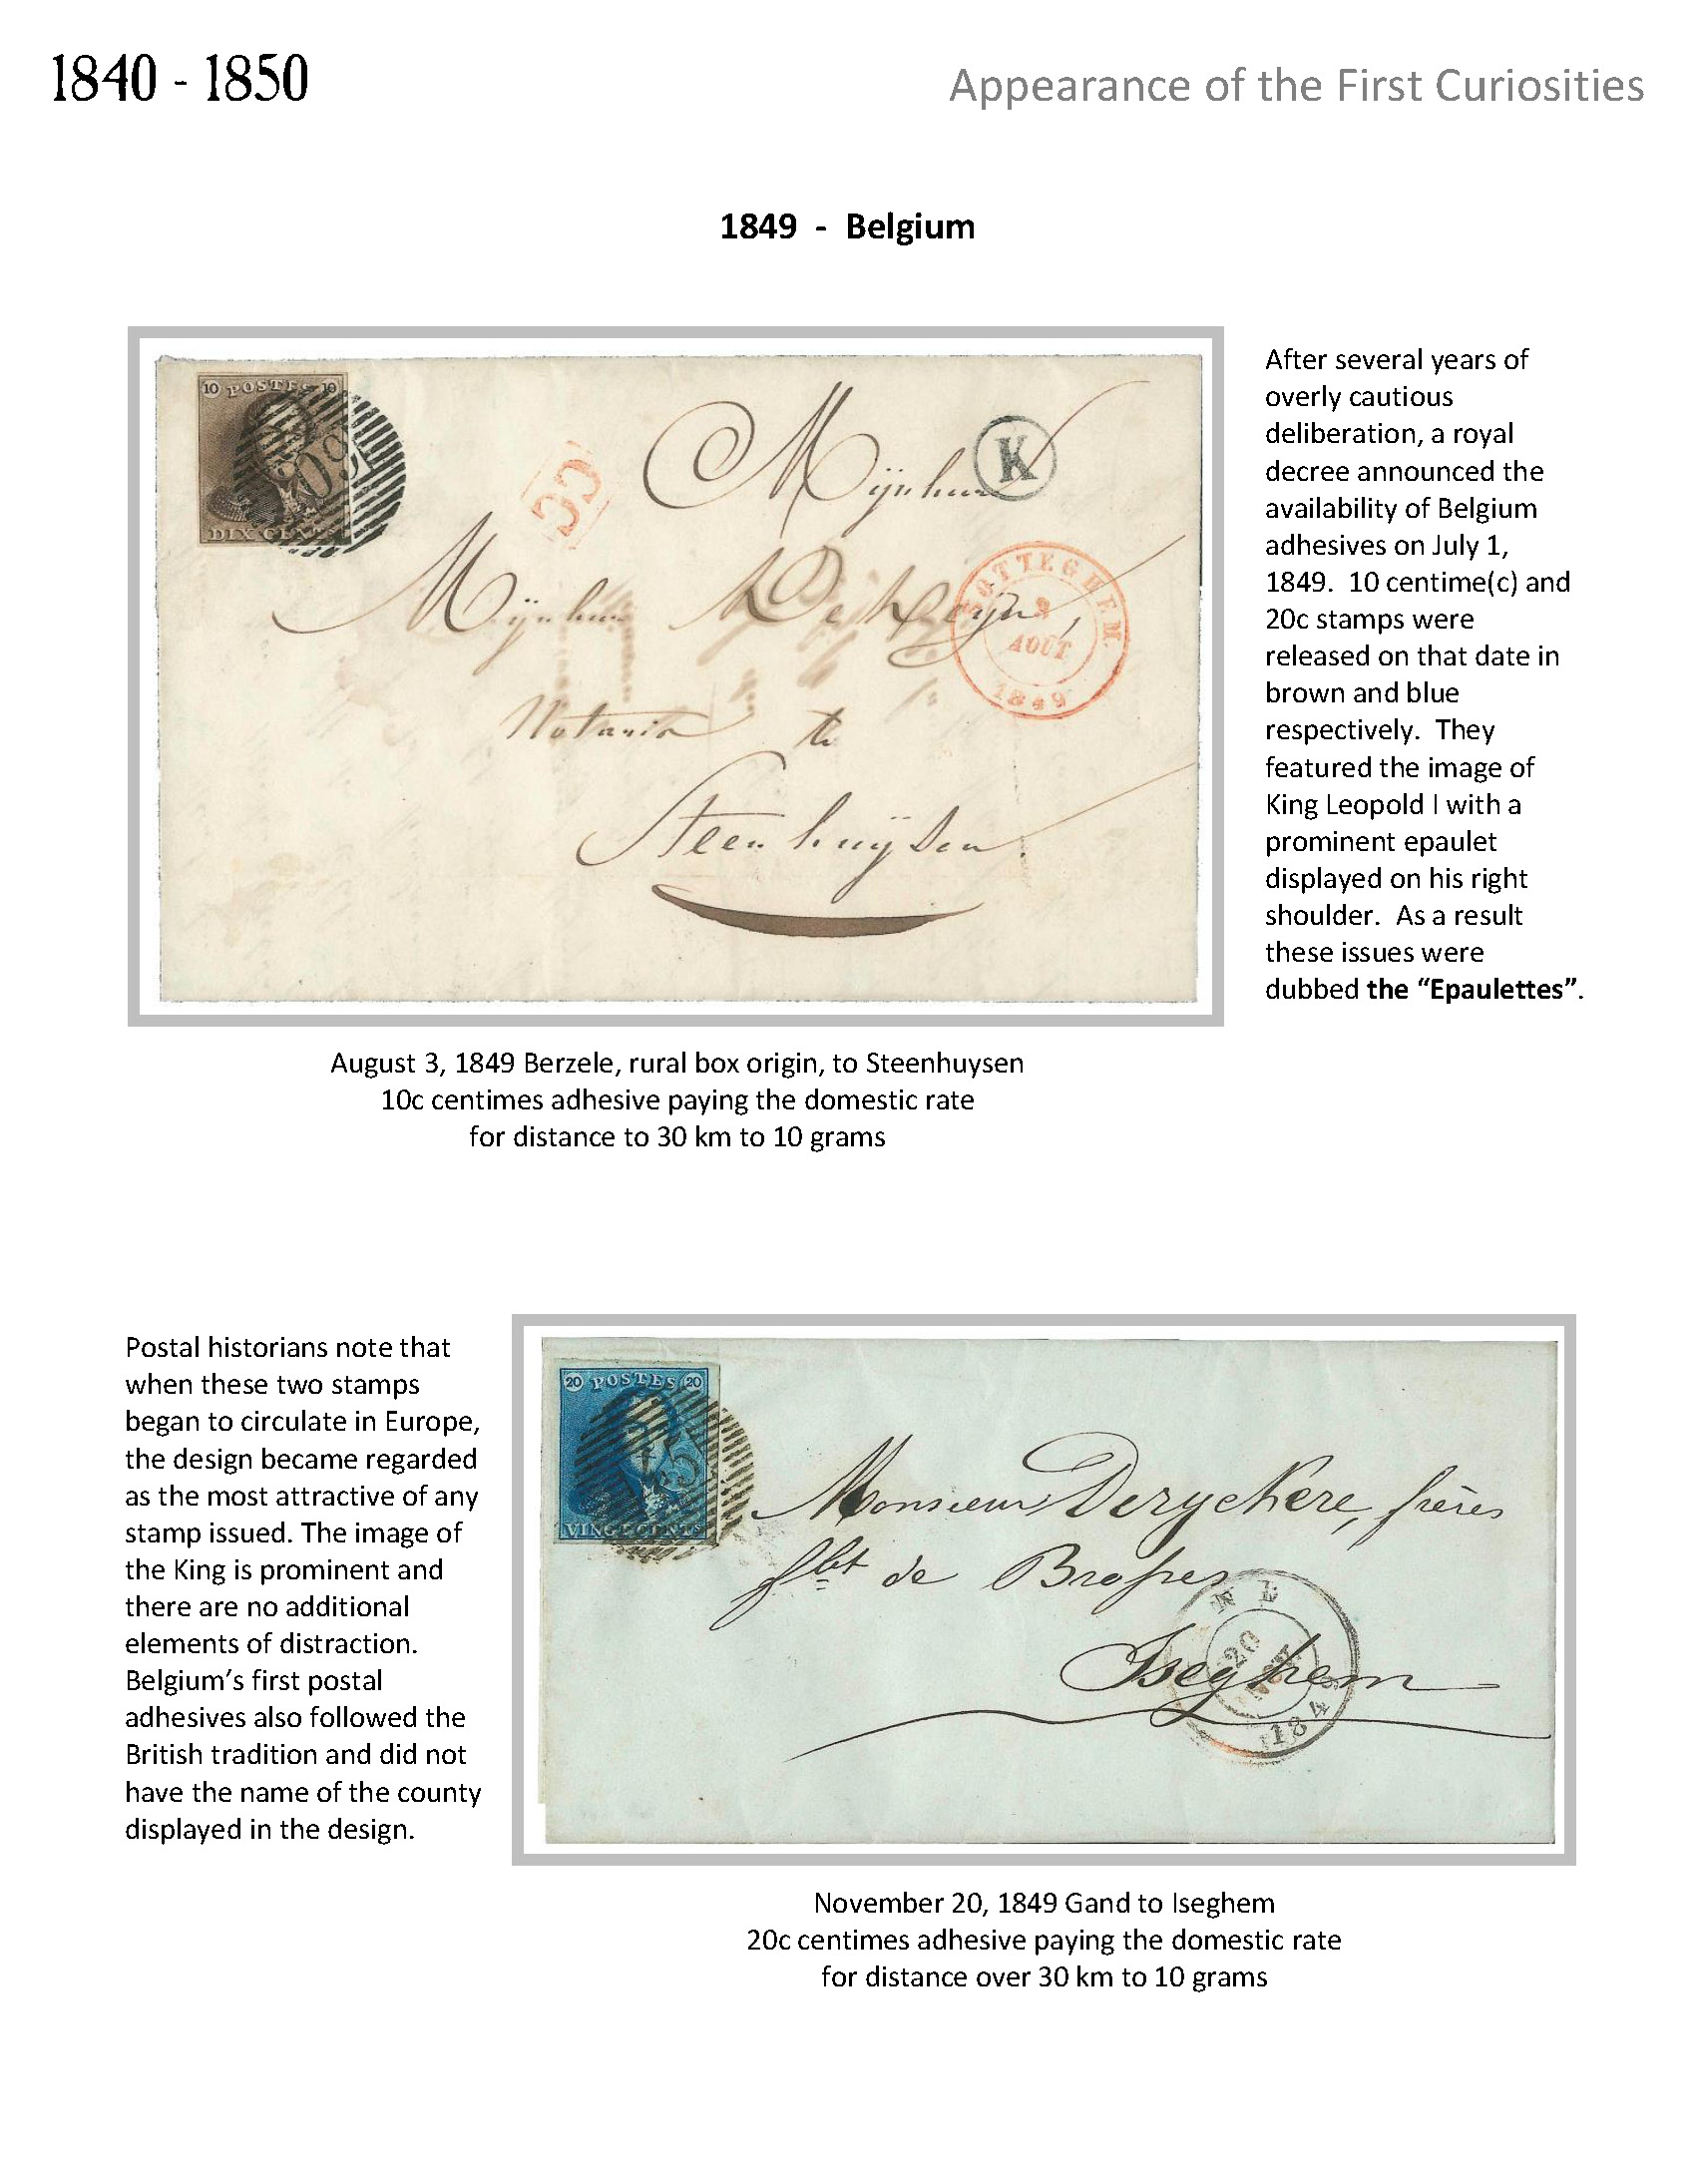 1840 - 1850
Appearance of the First Curiosities
1849 - Belgium
10 POSTES 10
DIX CENTS
Mijnheer
K
Mijnheer De
SOTTEGHEM
3
AOUT
1849
Notaris te
Steenhuysen.
After several years of
overly cautious
deliberation, a royal
decree announced the
availability of Belgium
adhesives on July 1,
1849. 10 centime(c) and
20c stamps were
released on that date in
brown and blue
respectively. They
featured the image of
King Leopold I with a
prominent epaulet
displayed on his right
shoulder. As a result
these issues were
dubbed the “Epaulettes”.
August 3, 1849 Berzele, rural box origin, to Steenhuysen
10c centimes adhesive paying the domestic rate
for distance to 30 km to 10 grams
Postal historians note that
when these two stamps
began to circulate in Europe,
the design became regarded
as the most attractive of any
stamp issued. The image of
the King is prominent and
there are no additional
elements of distraction.
Belgium’s first postal
adhesives also followed the
British tradition and did not
have the name of the county
displayed in the design.
20 POSTES 20
VINGT CENTS
Monsieur Deryckere, frères
de
Iseghem
20
184
November 20, 1849 Gand to Iseghem
20c centimes adhesive paying the domestic rate
for distance over 30 km to 10 grams